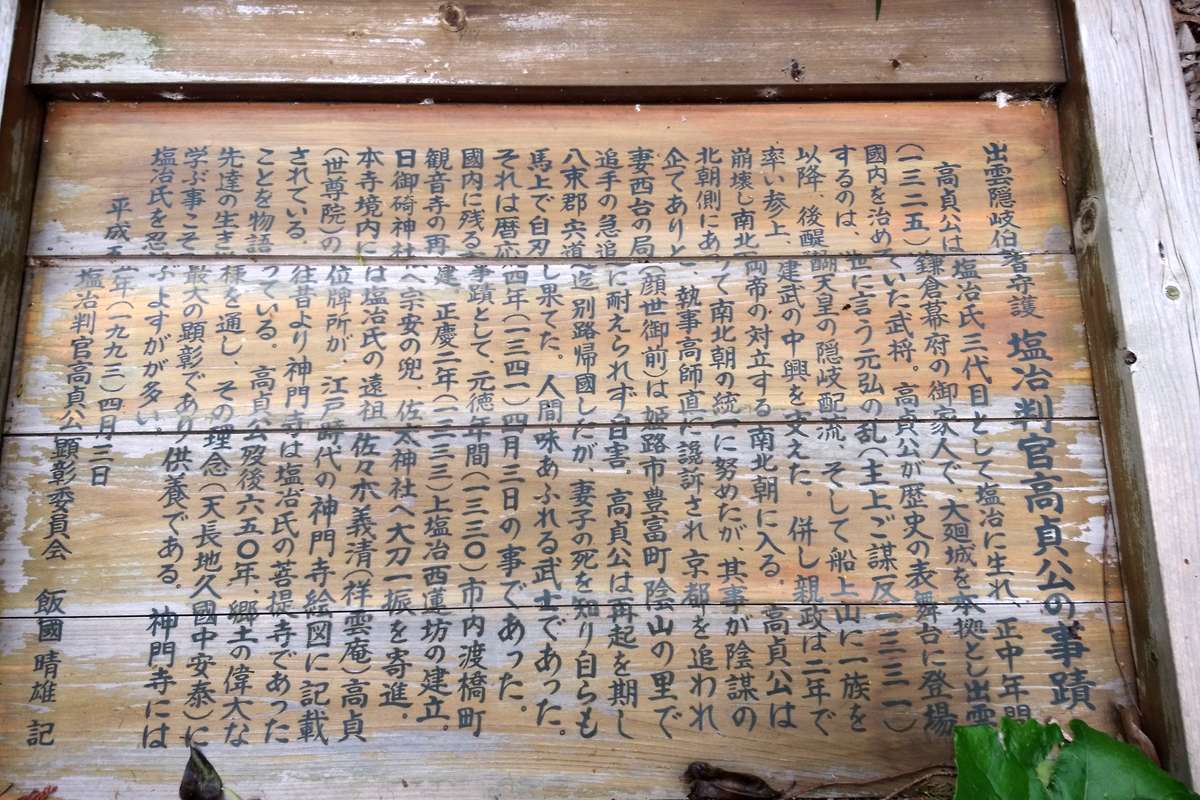 出雲隠岐伯耆守護 塩冶判官高貞公の事蹟
高貞公は塩冶氏三代目として塩冶に生れ、正中年間
(一三二五)鎌倉幕府の御家人で、大廻城を本拠とし出雲
國内を治めていた武将。高貞公が歴史の表舞台に登場
するのは、世に言う元弘の乱(主上ご謀反一三三一)
以降、後醍醐天皇の隠岐配流、そして船上山に一族を
率い参上、建武の中興を支えた。併し親政は二年で
崩壊し南北両帝の対立する南北朝に入る。高貞公は
北朝側にあって南北朝の統一に努めたが、其事が陰謀の
企てありと、執事高師直に讒訴され京都を追われ
妻西台の局(顔世御前)は姫路市豊富町陰山の里で
追手の急追に耐えられず自害。高貞公は再起を期し
八束郡宍道迄別路帰國したが、妻子の死を知り自らも
馬上で自刃し果てた。人間味あふれる武士であった。
それは暦応四年(一三四一)四月三日の事であった。
國内に残る事蹟として、元徳年間(一三三〇)市内渡橋町
観音寺の再建、正慶二年(一三三三)上塩冶西蓮坊の建立。
日御碕神社へ宗安の兜、佐太神社へ大刀一振を寄進。
本寺境内には塩冶氏の遠祖 佐々木義清(祥雲庵)高貞
(世尊院)の位牌所が、江戸時代の神門寺絵図に記載
されている。往昔より神門寺は塩冶氏の菩提寺であった
ことを物語っている。高貞公歿後六五〇年、郷土の偉大な
先達の生き様を通し、その理念(天長地久國中安泰)に
学ぶ事こそ最大の顕彰であり供養である。神門寺には
塩冶氏を忍ぶよすがが多い。
平成五年(一九九三)四月三日
塩冶判官高貞公顕彰委員会 飯國晴雄 記